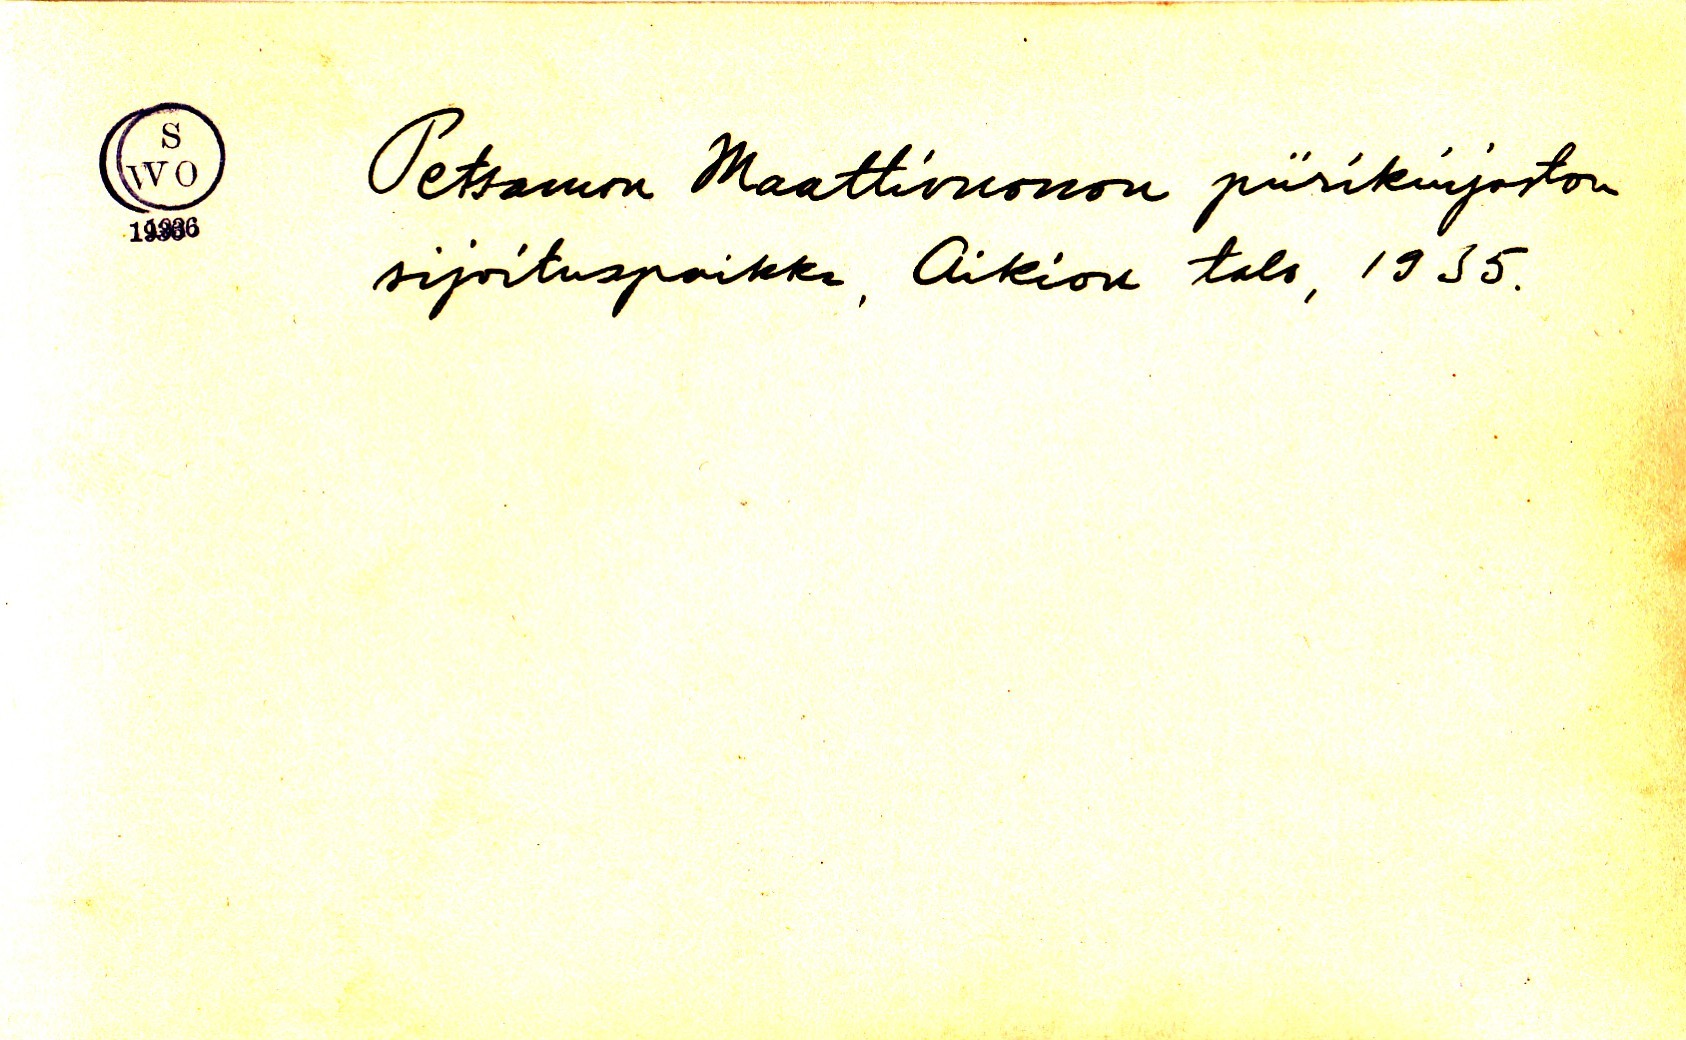 S
WO
1936
Petsamon Maattivuonon piirikirjaston
sijoituspaikka, Aikion talo, 1935.